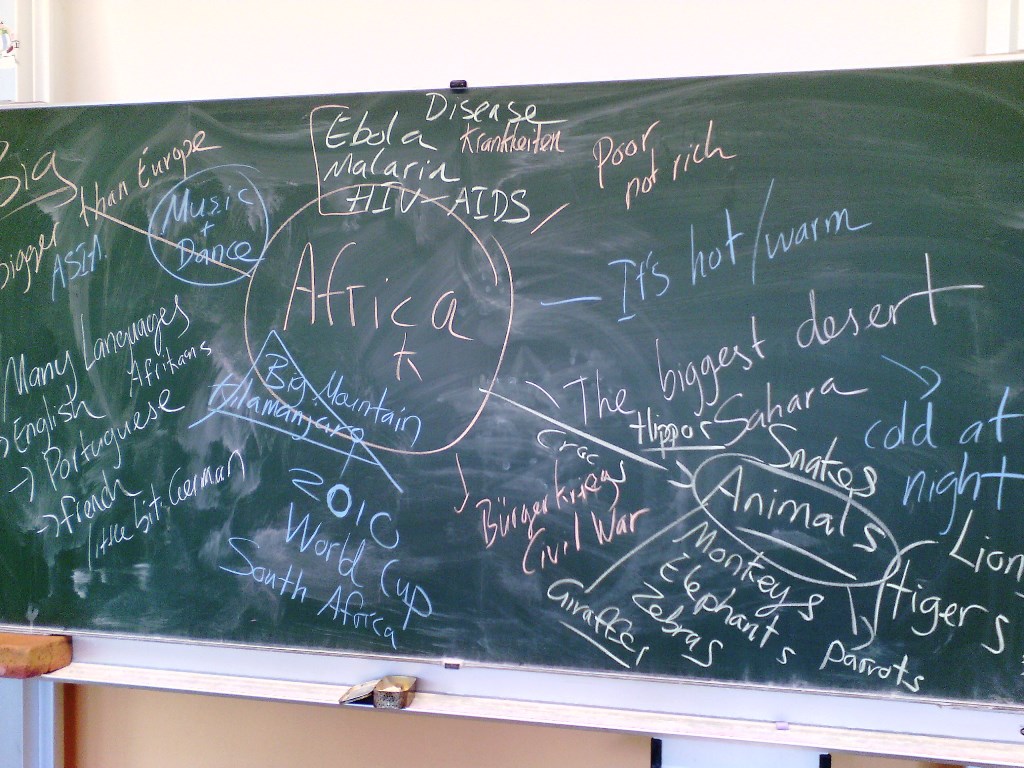 Big
bigger than Europe
ASIA
Music
+
Dance
Disease
Ebola Krankheiten
Malaria
HIV-AIDS
Poor
not rich
Africa
It's hot/warm
The biggest desert
Sahara
cold at
night
Many Languages
Afrikans
English
Portuguese
French
little bit German
Big Mountain
Kilamanjaro
2010
World Cup
South Africa
Bürgerkrieg
Civil War
Hippos
Crocs
Snakes
Animals
Lion
tigers
Monkeys
Elephants
Zebras
Giraffe
Parrots